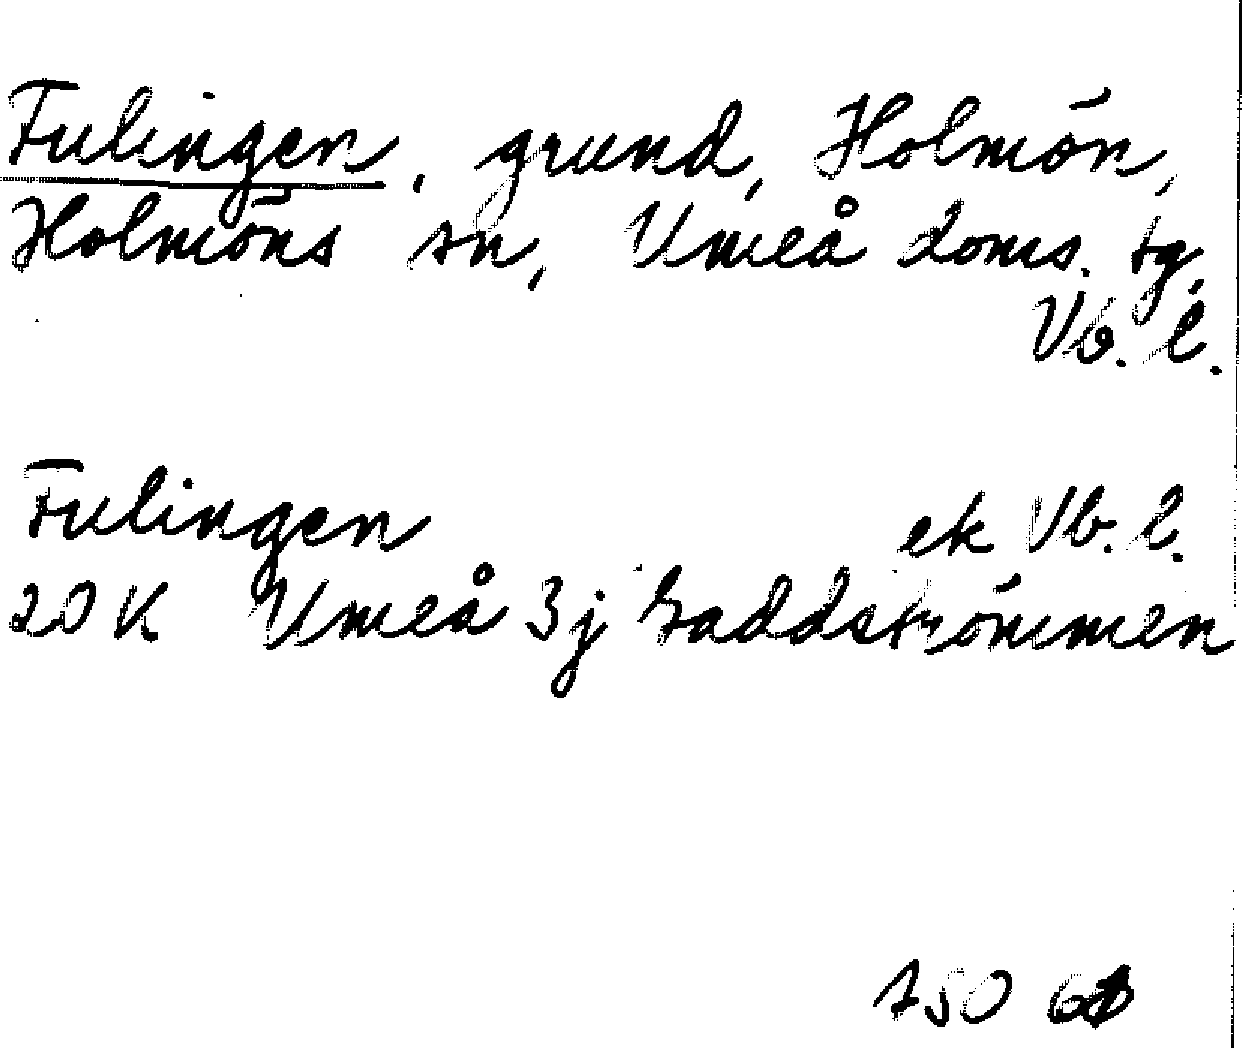 Fulingen, grund, Holmön,
Holmöns sn, Umeå doms. tg,
Vb. l.
Fulingen ek Vb. l.
20 K Umeå 3j Gaddströmmen
ISO